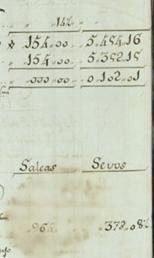 142
154.00 5.454.16
154.00 5.352.15
000.00 0.102.01
Salcas Sevos
964 378.08